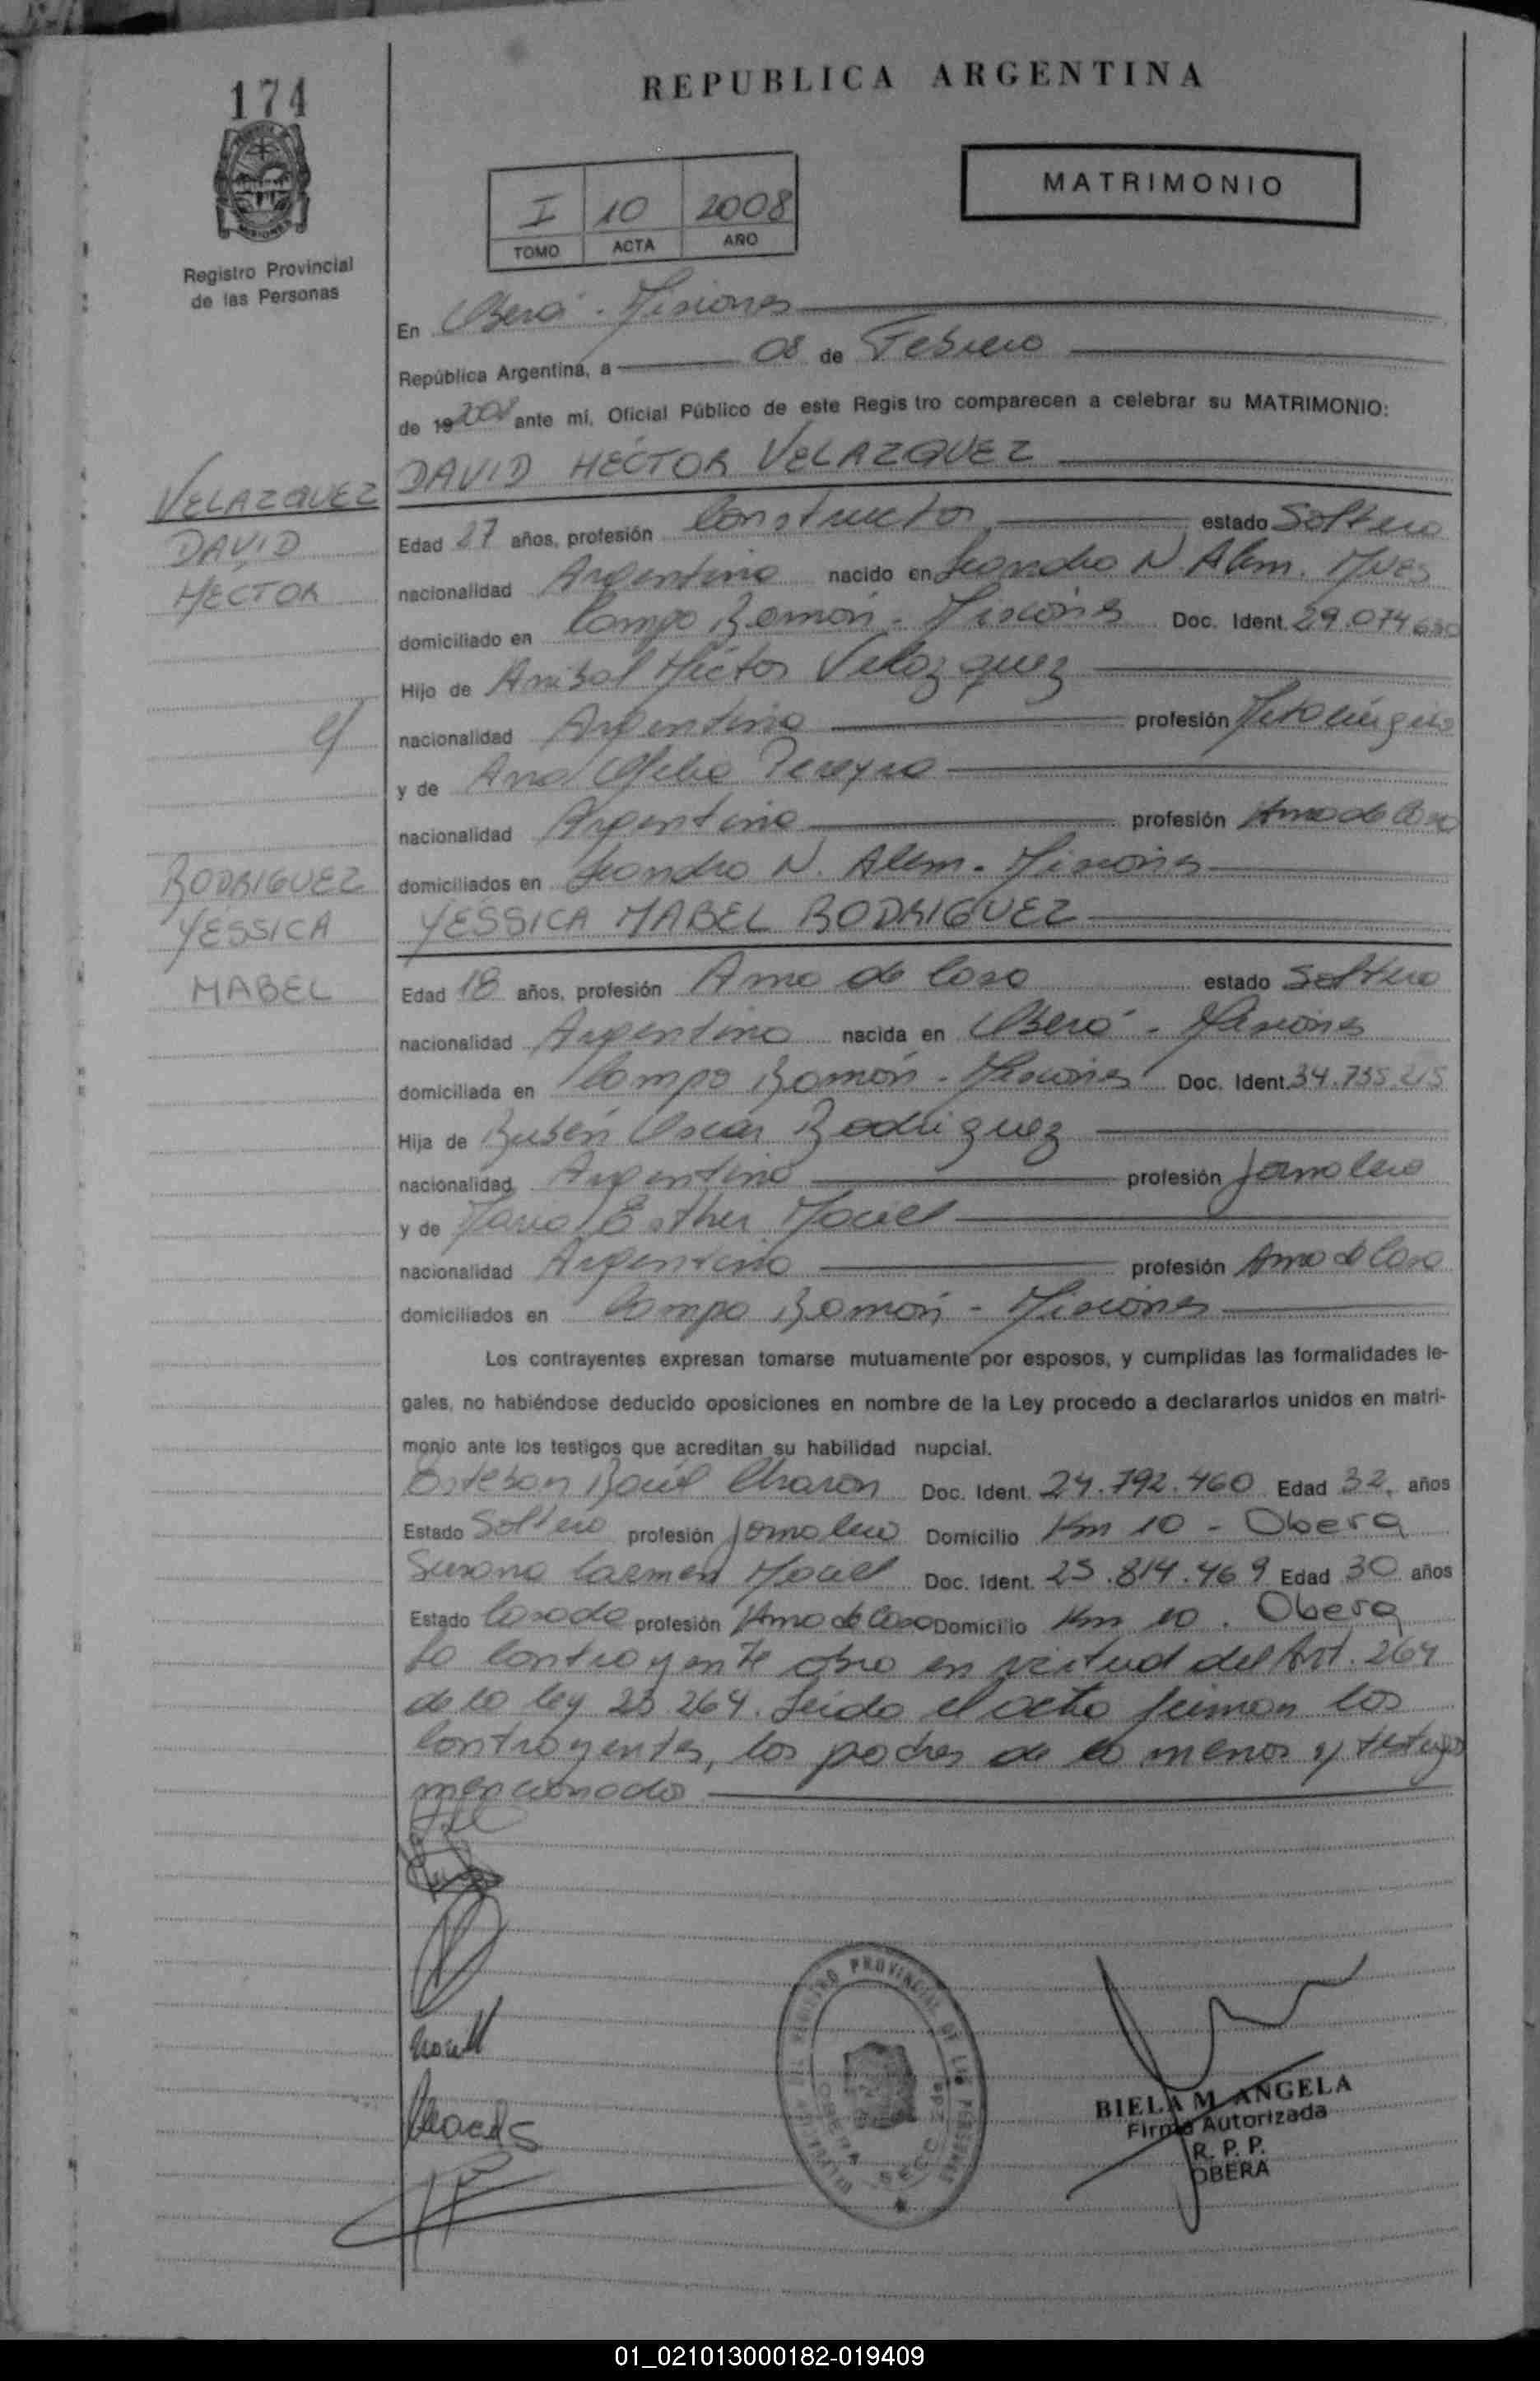 174
REPUBLICA ARGENTINA
MATRIMONIO
I 10 2008
TOMO ACTA AÑO
Registro Provincial
de las Personas
En Oberá - Misiones
República Argentina, a 08 de Febrero
de 19 2008 ante mí, Oficial Público de este Regis tro comparecen a celebrar su MATRIMONIO:
DAVID HECTOR VELAZQUEZ
VELAZQUEZ
DAVID
HECTOR
Edad 27 años, profesión Constructor estado Soltero
nacionalidad Argentina nacido en Leandro N. Alem. Mnes
domiciliado en Campo Ramón - Misiones Doc. Ident. 29.074.630
Hijo de Anibal Héctor Velazquez
nacionalidad Argentina profesión
y de Ana Ofelia Pereyra
nacionalidad Argentina profesión Ama de Casa
domiciliados en Leandro N. Alem - Misiones
YESSICA MABEL RODRIGUEZ
RODRIGUEZ
YESSICA
MABEL
Edad 18 años, profesión Ama de Casa estado Soltera
nacionalidad Argentina nacida en Oberá - Misiones
domiciliada en Campo Ramón - Misiones Doc. Ident. 34.735.215
Hija de Rubén Oscar Rodriguez
nacionalidad Argentina profesión Jornalero
y de María Esther Maciel
nacionalidad Argentina profesión Ama de Casa
domiciliados en Campo Ramón - Misiones
Los contrayentes expresan tomarse mutuamente por esposos, y cumplidas las formalidades le-
gales, no habiéndose deducido oposiciones en nombre de la Ley procedo a declararlos unidos en matri-
monio ante los testigos que acreditan su habilidad nupcial.
Esteban Raúl Charon Doc. Ident. 24.792.460 Edad 32 años
Estado Soltero profesión Jornalero Domicilio Km 10 - Obera
Susana Carmen Maciel Doc. Ident. 25.814.469 Edad 30 años
Estado Casada profesión Ama de Casa Domicilio Km 10. Obera
La Contrayente obra en virtud del Art. 264
de la ley 23.264. Leida el acta firman los
Contrayentes, los padres de la menor y testigos
mencionados
REGISTRO PROVINCIAL DE LAS PERSONAS
OBERA SECC. 2da
BIELA M ANGELA
Firma Autorizada
R. P. P.
OBERA
01_021013000182-019409